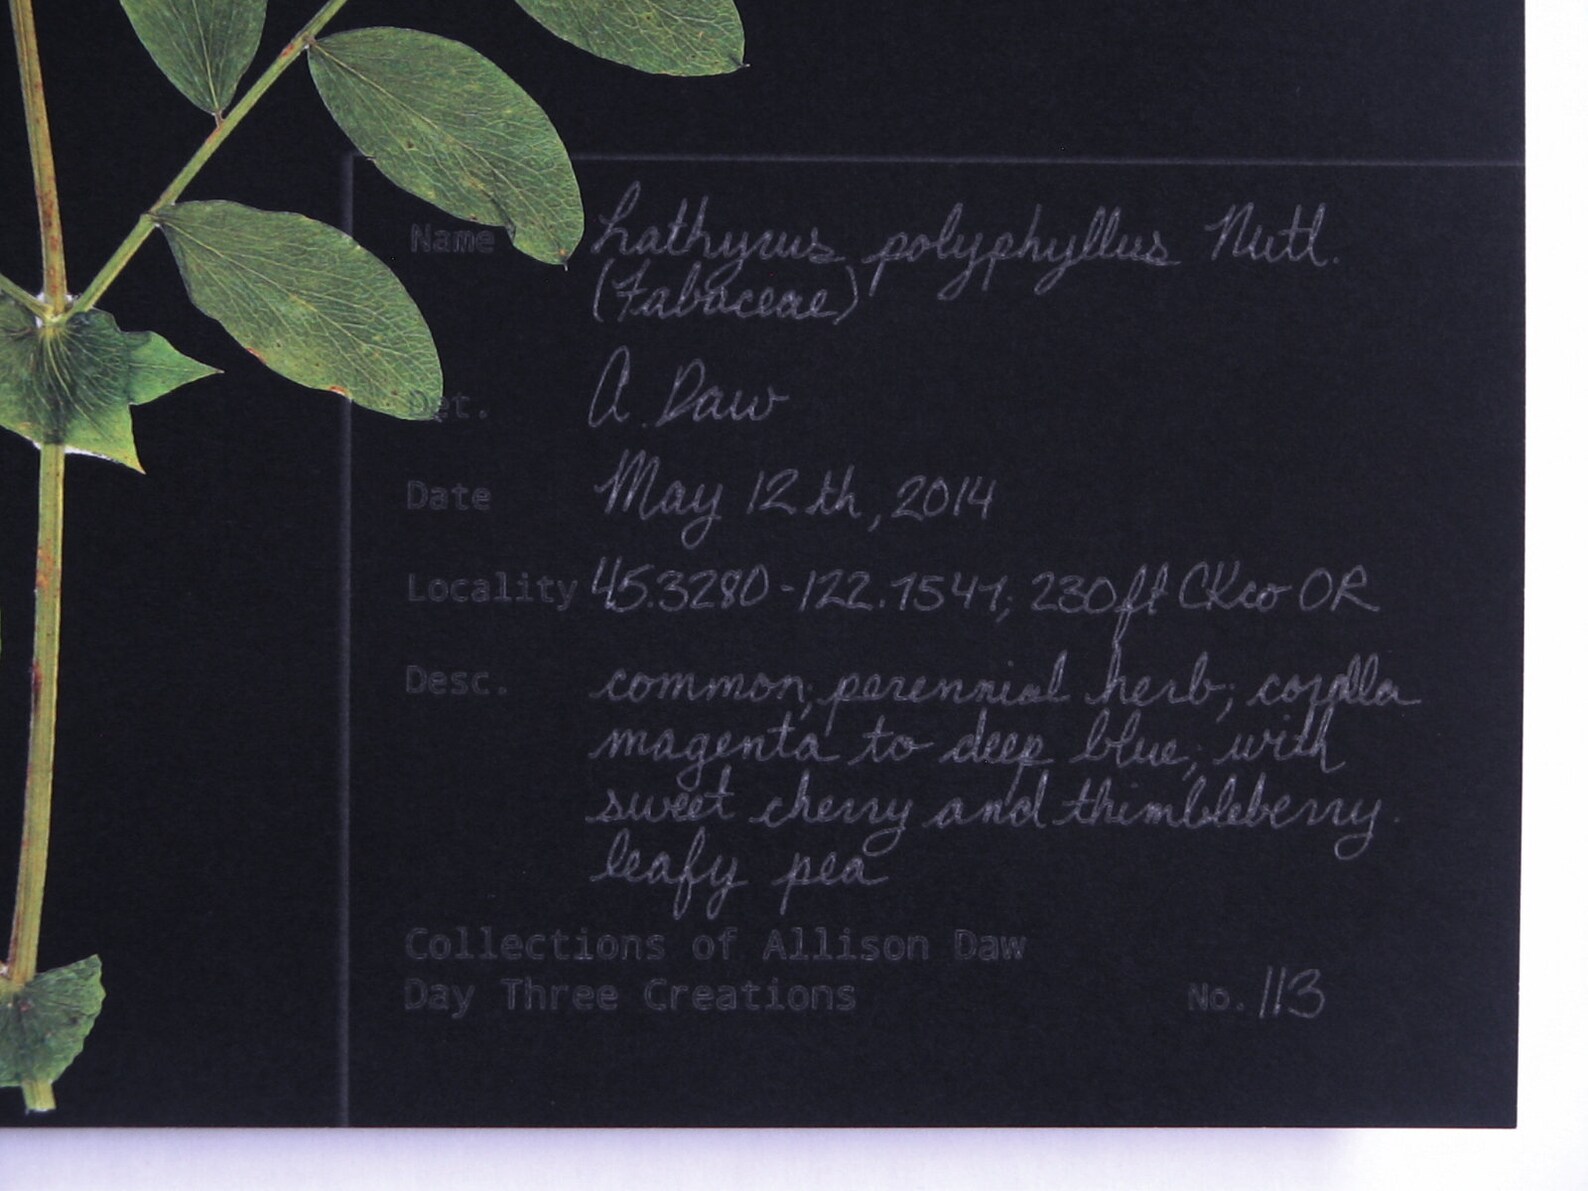 Name Lathyrus polyphyllus Nutl.
(Fabaceae)
Det. A. Daw
Date May 12th, 2014
Locality 45.3280 -122.1541; 230ft CKco OR
Desc. common; perennial herb; corolla
magenta to deep blue; with
sweet cherry and thimbleberry.
leafy pea
Collections of Allison Daw
Day Three Creations No. 113